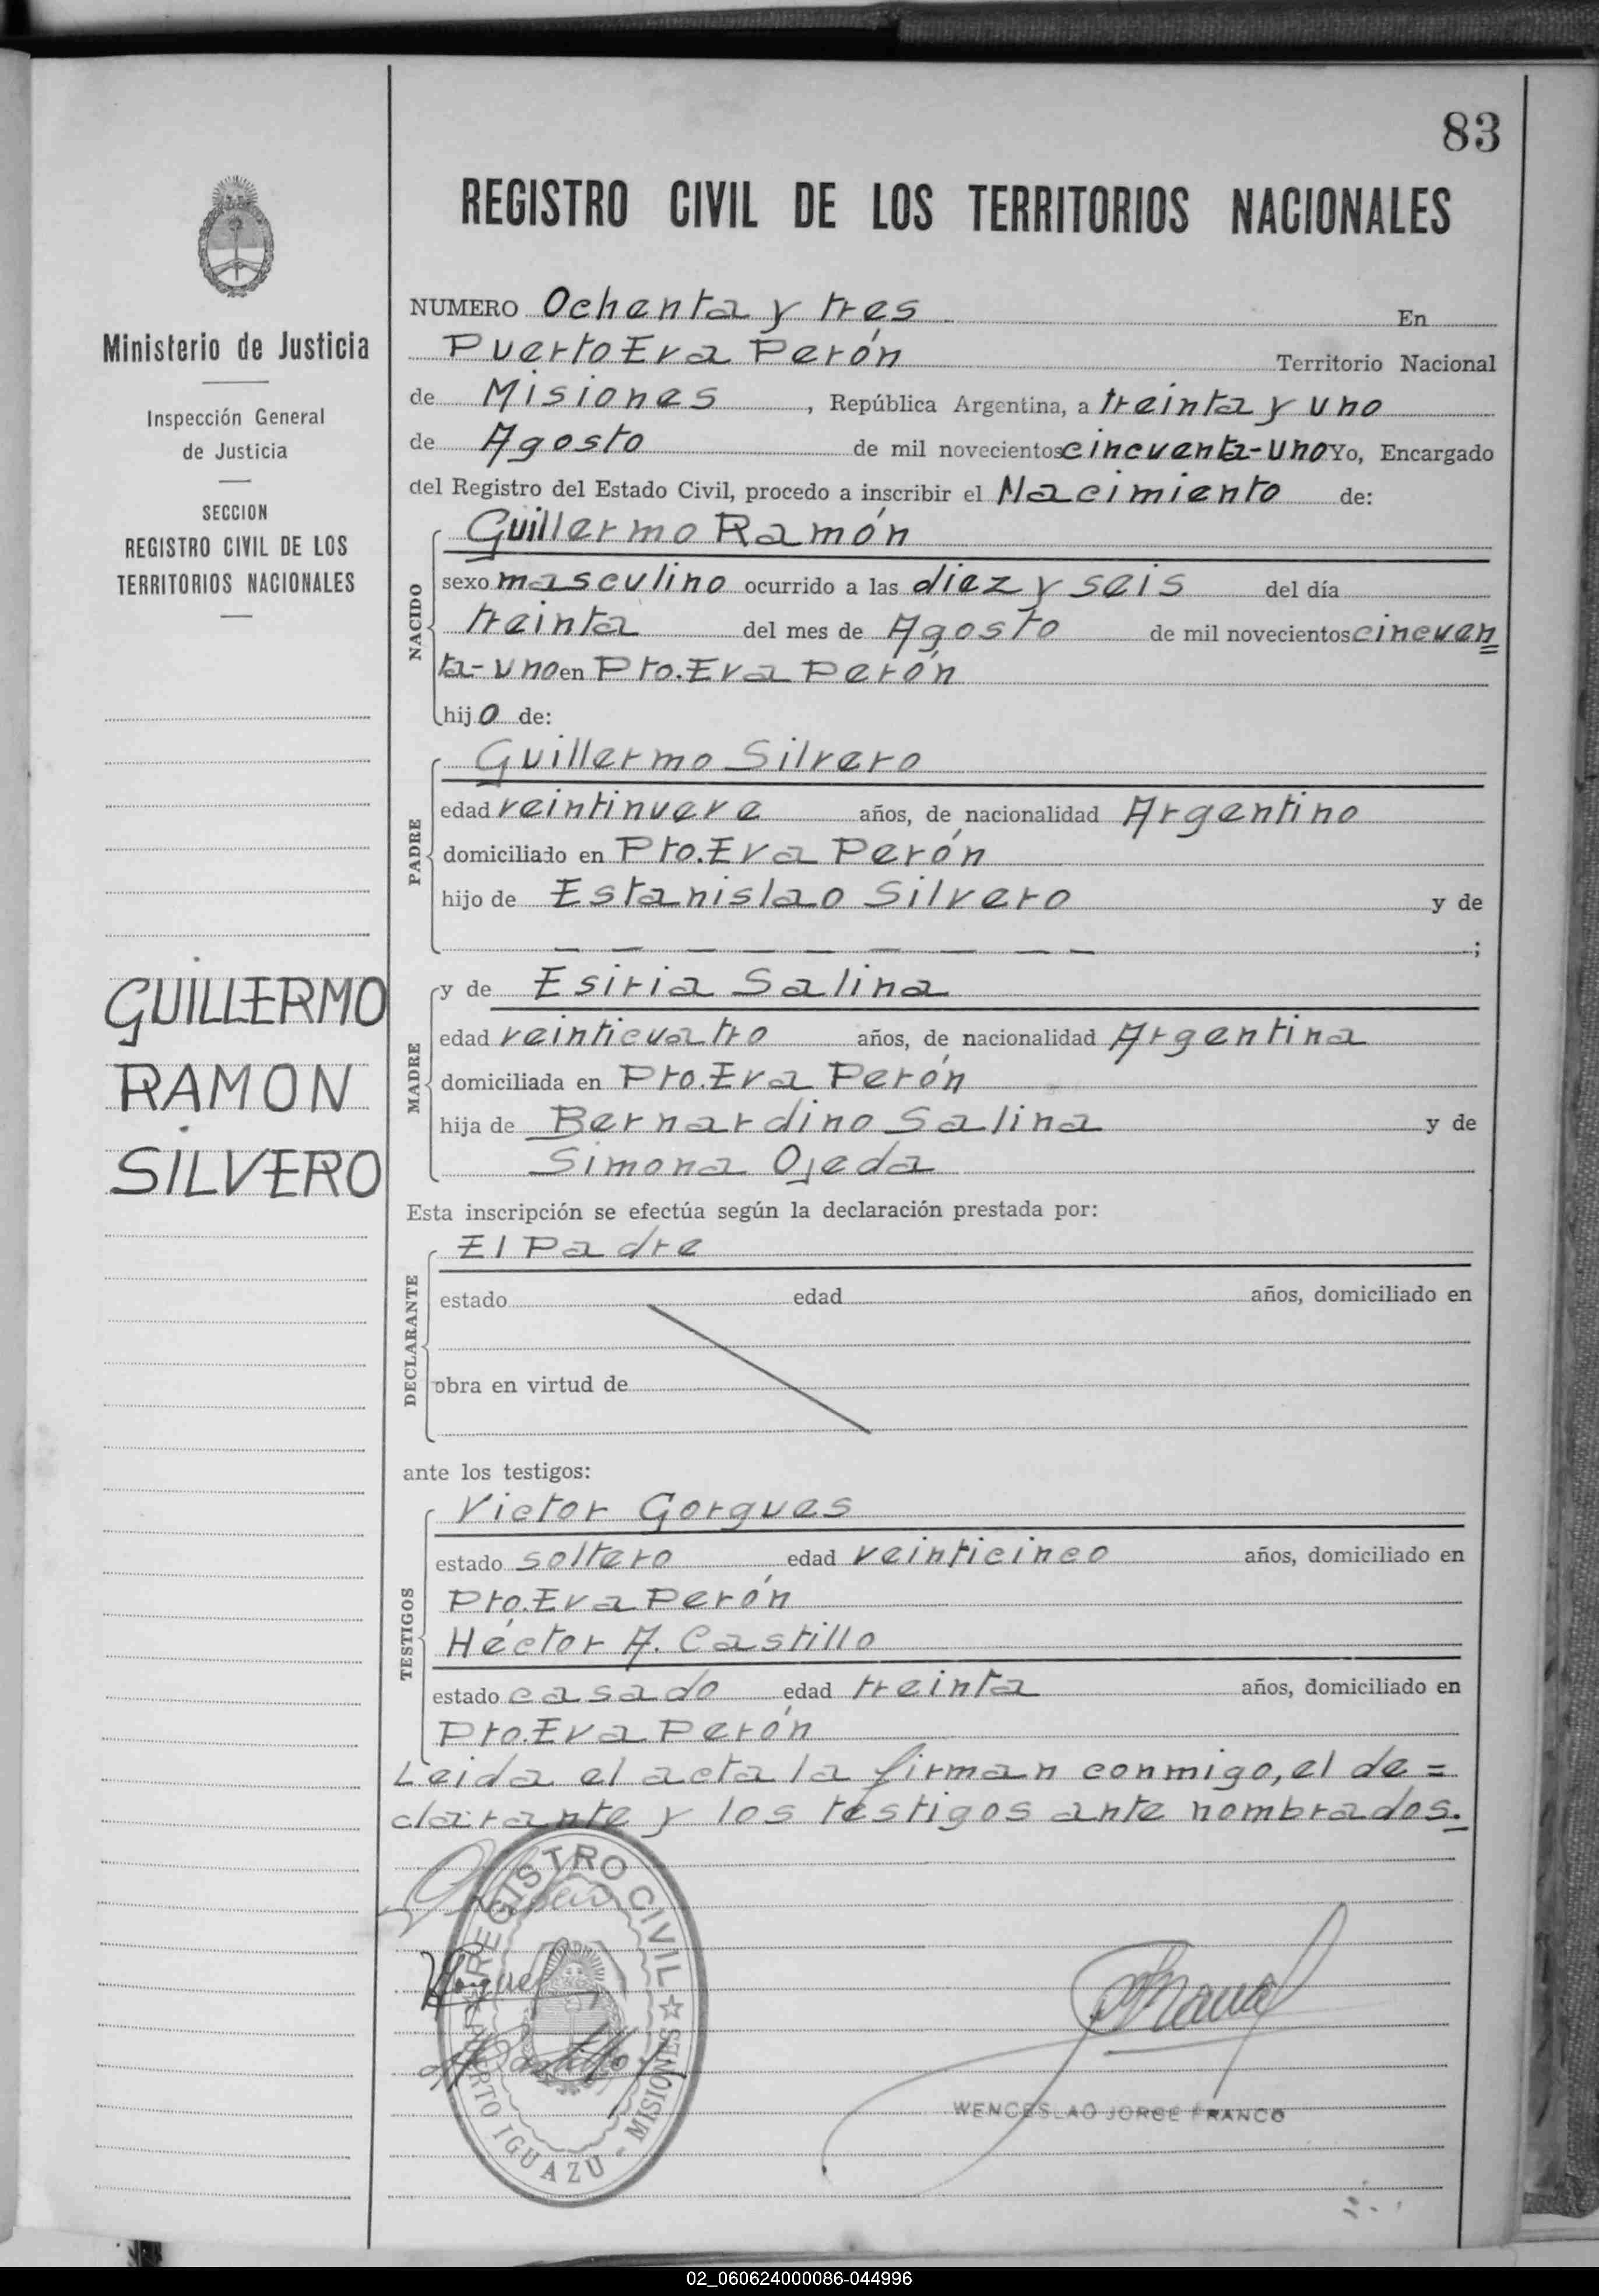 83
REGISTRO CIVIL DE LOS TERRITORIOS NACIONALES
Ministerio de Justicia
Inspección General
de Justicia
SECCION
REGISTRO CIVIL DE LOS
TERRITORIOS NACIONALES
GUILLERMO
RAMON
SILVERO
NUMERO Ochenta y tres En
Puerto Eva Perón Territorio Nacional
de Misiones, República Argentina, a treinta y uno
de Agosto de mil novecientos cincuenta-uno Yo, Encargado
del Registro del Estado Civil, procedo a inscribir el Nacimiento de:
NACIDO
Guillermo Ramón
sexo masculino ocurrido a las diez y seis del día
treinta del mes de Agosto de mil novecientos cincuen=
ta-uno en Pto. Eva Perón
hijo de:
PADRE
Guillermo Silvero
edad veintinueve años, de nacionalidad Argentino
domiciliado en Pto. Eva Perón
hijo de Estanislao Silvero y de
— — — — — — — — ;
MADRE
y de Esiria Salina
edad veinticuatro años, de nacionalidad Argentina
domiciliada en Pto. Eva Perón
hija de Bernardino Salina y de
Simona Ojeda
Esta inscripción se efectúa según la declaración prestada por:
DECLARANTE
El Padre
estado edad años, domiciliado en
obra en virtud de
ante los testigos:
TESTIGOS
Victor Gorgues
estado soltero edad veinticinco años, domiciliado en
Pto. Eva Perón
Héctor A. Castillo
estado casado edad treinta años, domiciliado en
Pto. Eva Perón
Leida el acta la firman conmigo, el de=
clarante y los testigos ante nombrados.
REGISTRO CIVIL ☆ MISIONES - PUERTO IGUAZU
WENCESLAO JORGE FRANCO
02_060624000086-044996